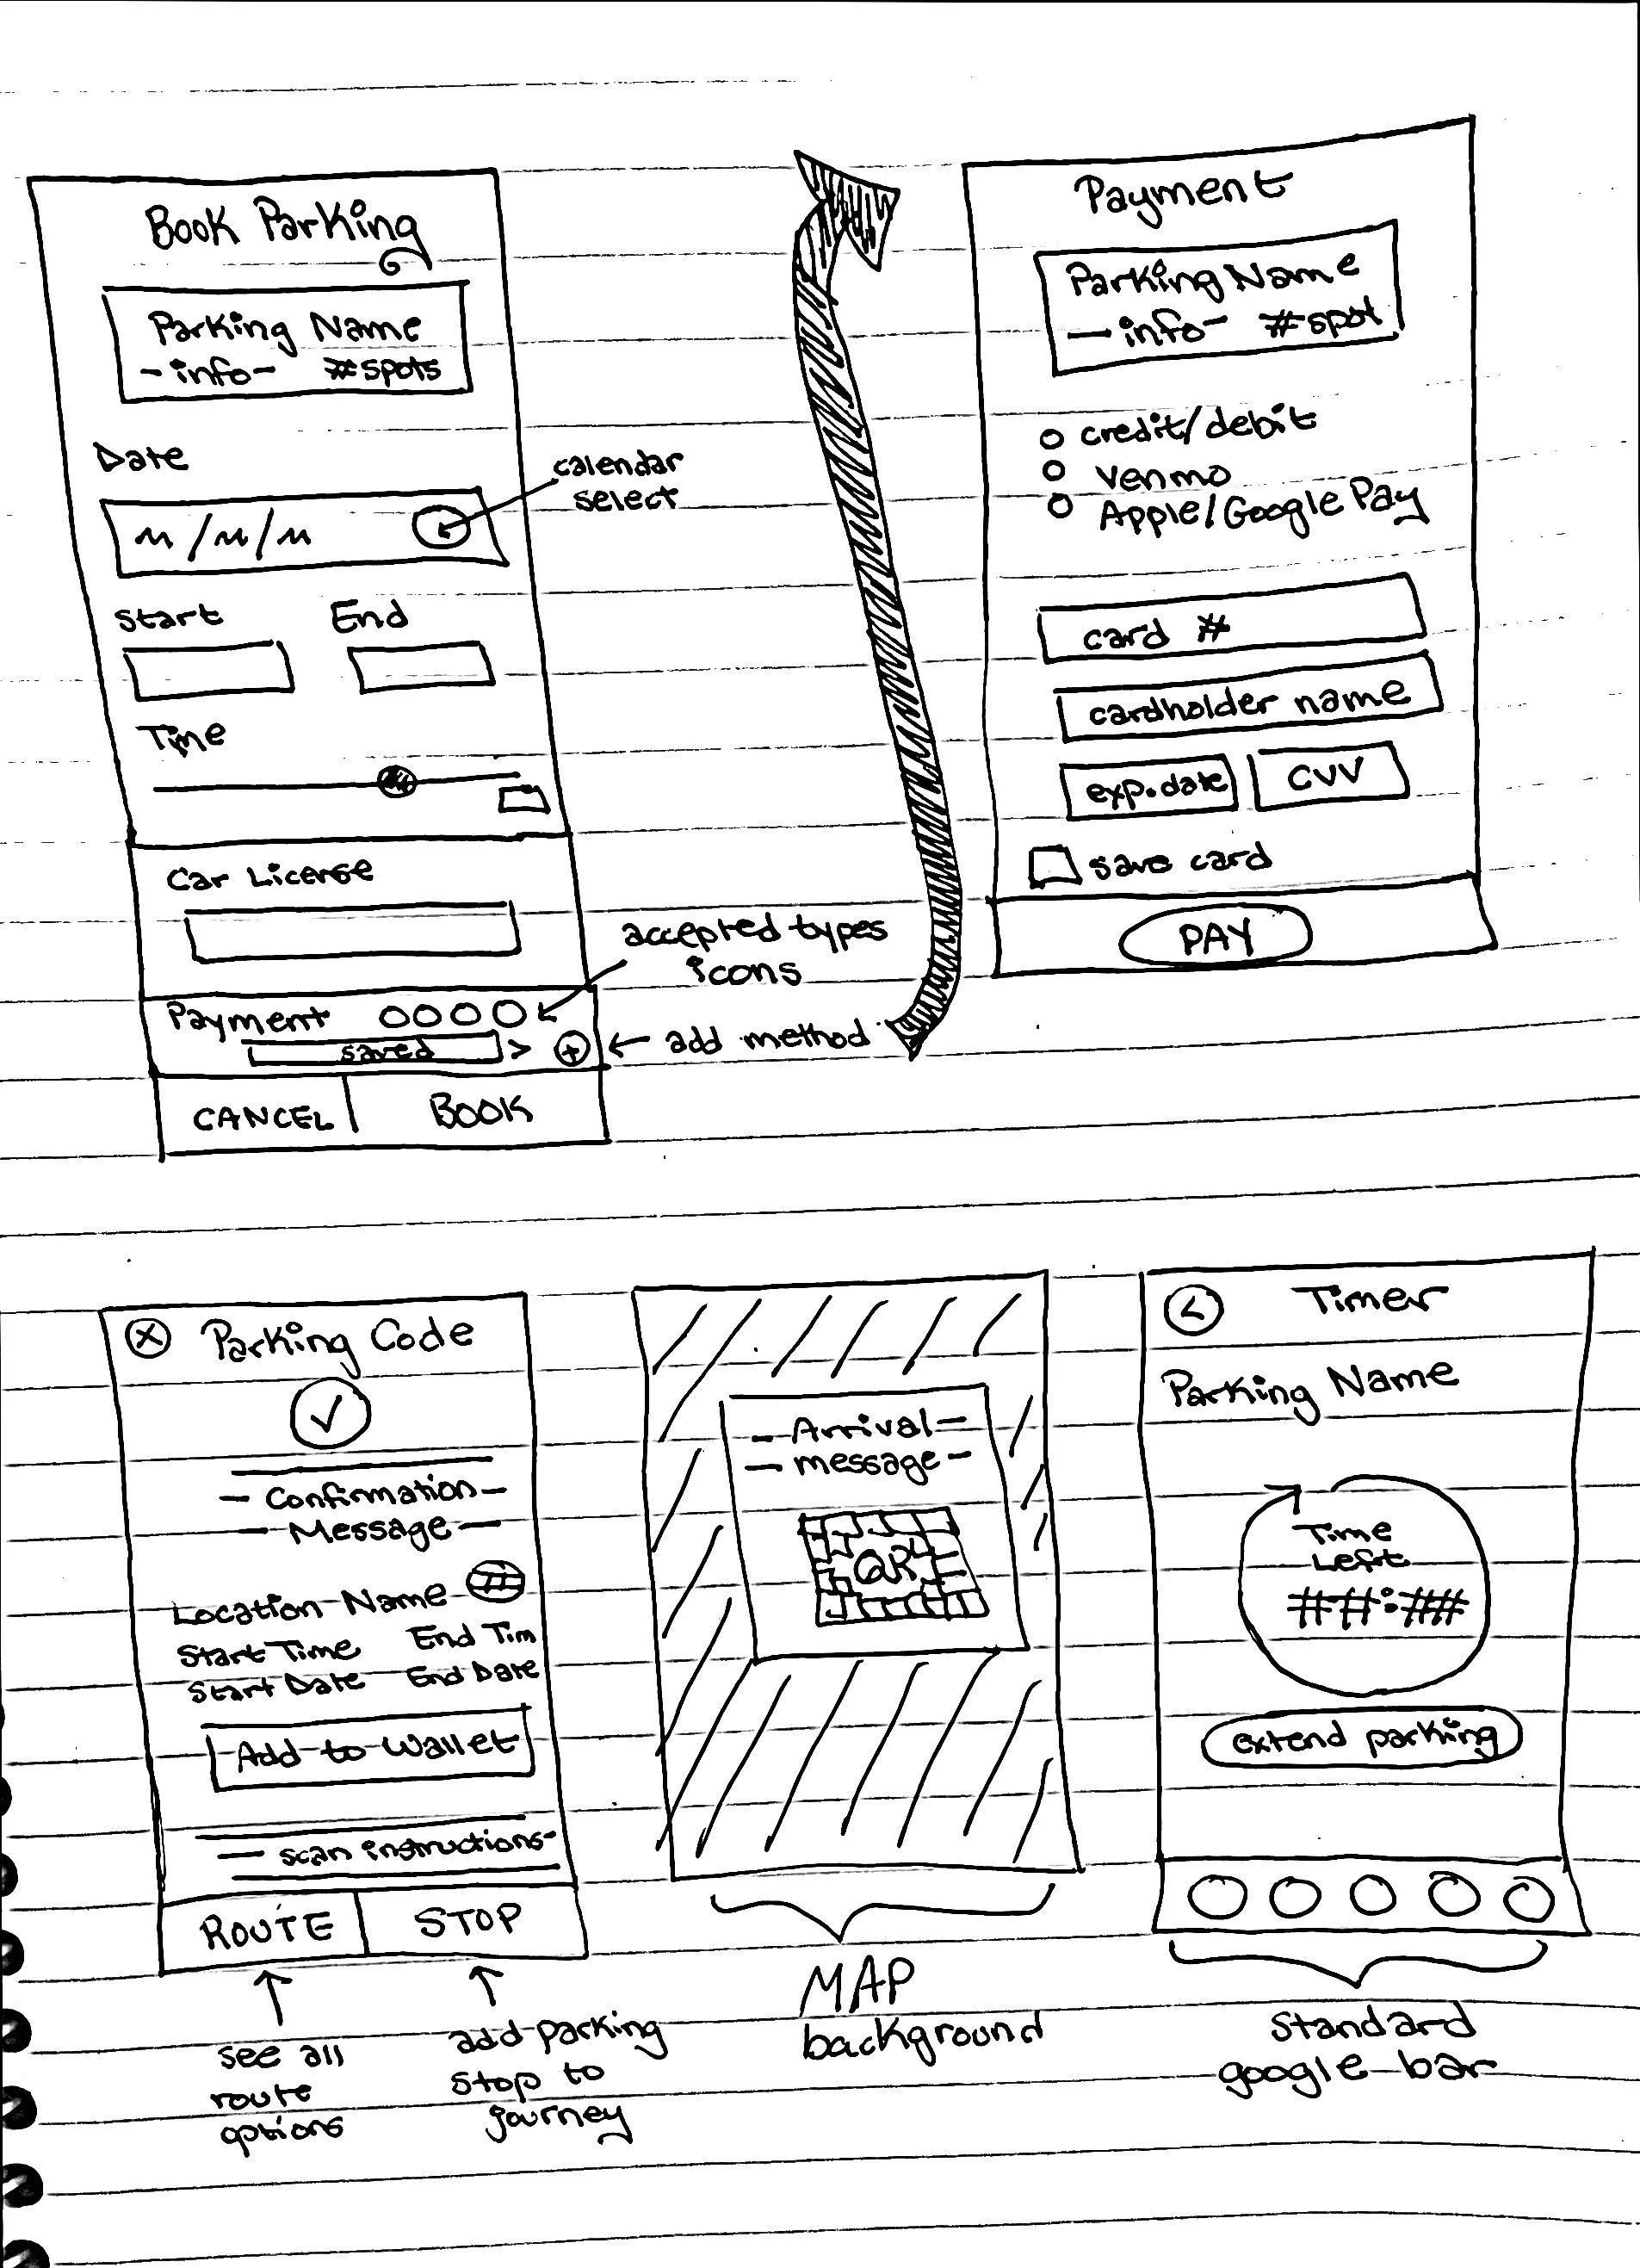 Book Parking
Parking Name
-info- #spots
Date
calendar
select
Start End
Time
Car License
accepted types
icons
Payment
saved > +
← add method
CANCEL BOOK
Payment
Parking Name
-info- #spot
credit/debit
venmo
Apple/Google Pay
card #
cardholder name
exp. date CVV
save card
PAY
X Parking Code
✓
- Confirmation -
- Message -
Location Name #
Start Time End Tim
Start Date End Date
Add to Wallet
- scan instructions -
ROUTE STOP
see all
route
options
add parking
stop to
journey
- Arrival -
- message -
QR
MAP
background
< Timer
Parking Name
Time
Left
##:##
extend parking
Standard
google bar